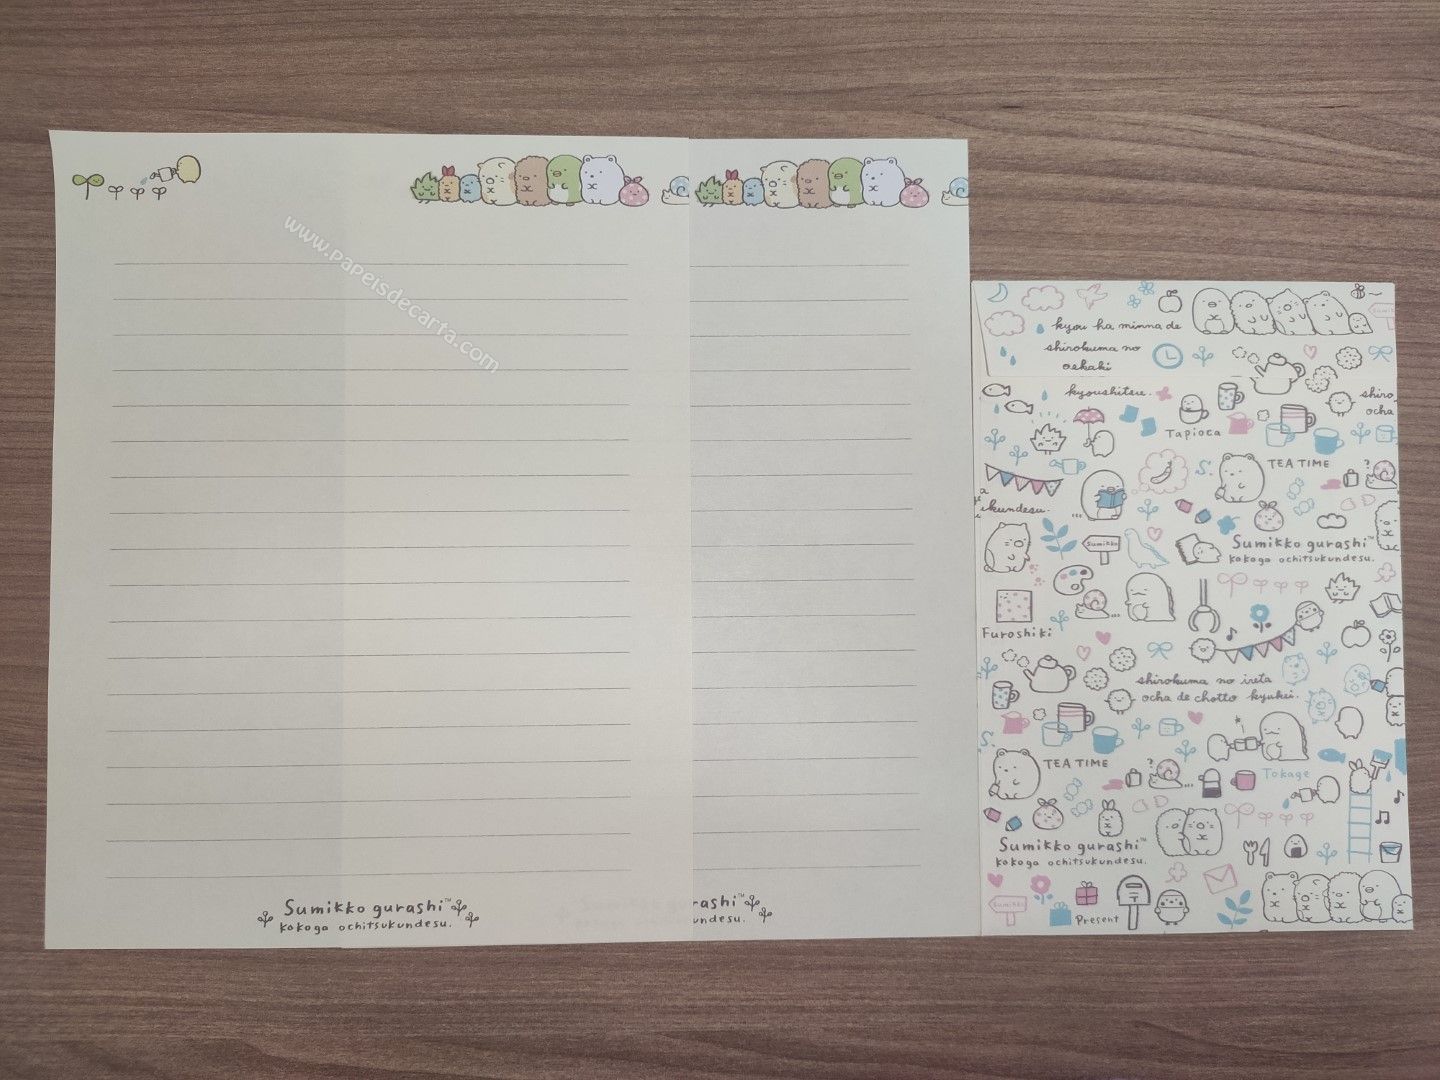 www.papeisdecarta.com
Sumikko gurashi™
kokoga ochitsukundesu.
urashi™
undesu.
kyou ha minna de
shirokuma no
oekaki
kyoushitsu.
shiro
ocha
Tapioca
S.
TEA TIME
?
a
ikundesu.
...
Sumikko
Sumikko gurashi™
kokoga ochitsukundesu.
...
Furoshiki
shirokuma no ireta
ocha de chotto kyukei.
S.
TEA TIME
?
...
Tokage
Sumikko gurashi™
kokoga ochitsukundesu.
Sumikko
Present